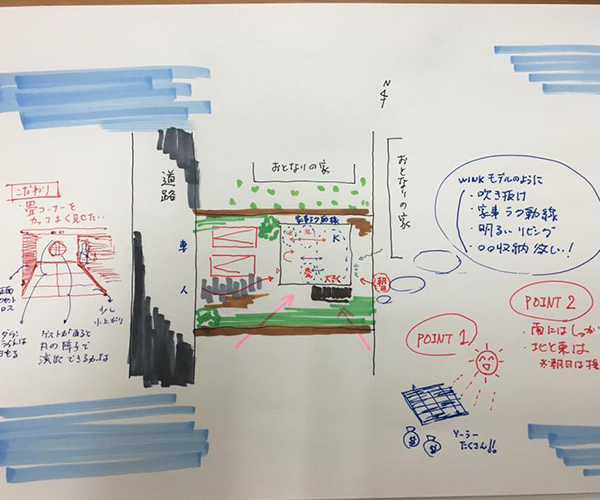 N
おとなりの家
おとなりの家
道路
車
人
家事ラク動線
K
WINKモデルのように
・吹き抜け
・家事ラク動線
・明るいリビング
・〇〇収納欲しい!
こだわり
・畳コーナーを
カッコよく見せたい。
正面
少し
小上がり
ダウン
ライトは
丸の障子で
演出できるかな
POINT 1
ソーラー
たくさん!!
POINT 2
・南にはしっか
・北と東は